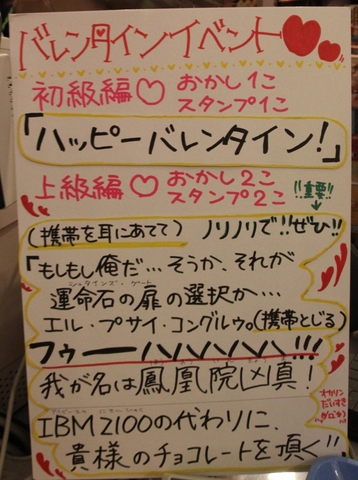 バレンタインイベント
初級編♡ おかし1こ
スタンプ1こ
「ハッピーバレンタイン!」
上級編♡ おかし2こ
スタンプ2こ
!!重要!!
(携帯を耳にあてて) ノリノリで!!ぜひ!!
「もしもし俺だ…そうか、それが
シュタインズ・ゲート
運命石の扉の選択か…
エル・プサイ・コングルゥ。(携帯とじる)
フゥーハハハハハ!!!
我が名は鳳凰院凶真!
IBM2100の代わりに、
貴様のチョコレートを頂く!!」
オカリン
だいすき